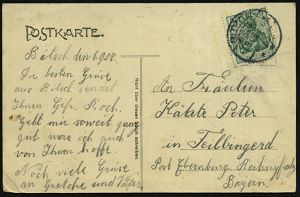 POSTKARTE.
Bitsch den 6.9.08.
Die besten Grüsse
aus Bitsch sendet
Ihnen Gefr. Koch.
Geht mir soweit ganz
gut was ich auch
von Ihnen hoffe.
Noch viele Grüsse
an Gretche und
An Fräulein
Kätate Peter
in Feilbingerd
Post Ebernburg
Bayern.